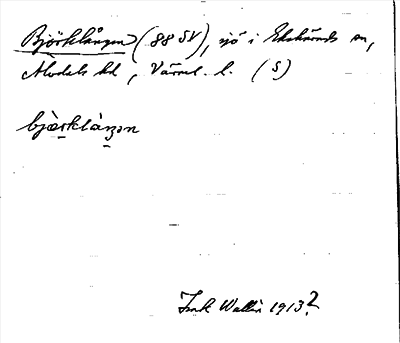 Björklången (88 SV), sjö i Ekshärads sn,
Älvdals hd, Värml. l. (S)
bjœrklàŋən
Wallin 1913?